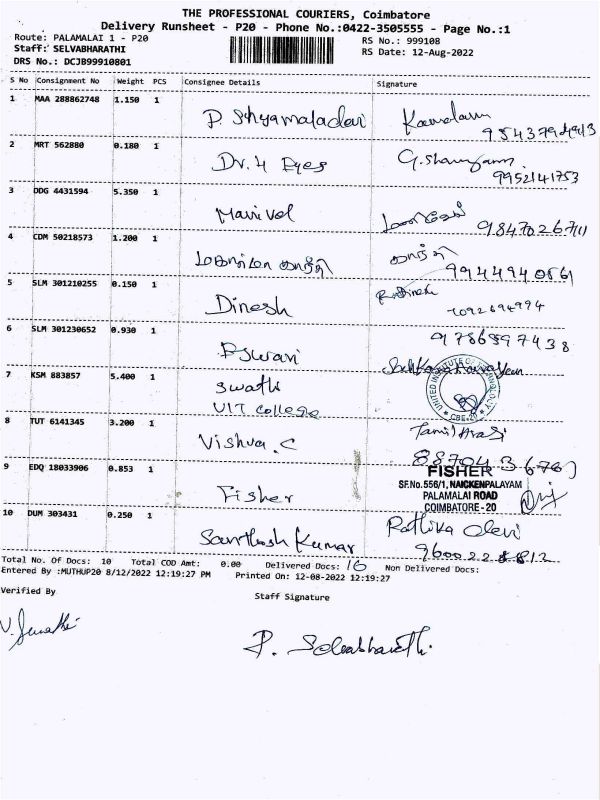 THE PROFESSIONAL COURIERS, Coimbatore
Delivery Runsheet - P20 - Phone No.:0422-3505555 - Page No.:1
Route: PALAMALAI 1 - P20
RS No.: 999108
Staff: SELVABHARATHI
RS Date: 12-Aug-2022
DRS No.: DCJB99910801
S No Consignment No Weight PCS Consignee Details Signature
1 MAA 288862748 1.150 1 P. Sthyamaladevi
2 MRT 562880 0.180 1 Dr. 4 Eyes
9952141753
3 DDG 4431594 5.350 1 Manivel
9847026711
4 CDM 50218573 1.200 1
9944940561
5 SLM 301210255 0.150 1 Dinesh
7092694994
6 SLM 301230652 0.930 1 Eswari
9786897438
7 KSM 883857 5.400 1 Swathi
UIT College
UNITED INSTITUTE OF TECHNOLOGY
CBE-20
8 TUT 6141345 3.200 1 Vishva. C
Tamil Arasi
9 EDQ 18033906 0.853 1 Fisher
FISHER
SF.No.556/1, NAICKENPALAYAM
PALAMALAI ROAD
COIMBATORE - 20
10 DUM 303431 0.250 1 Santhosh Kumar
Rathika Devi
Total No. Of Docs: 10 Total COD Amt: 0.00 Delivered Docs: 10 Non Delivered Docs:
Entered By :MUTHUP20 8/12/2022 12:19:27 PM Printed On: 12-08-2022 12:19:27
Verified By
Staff Signature
P. Selvabharathi